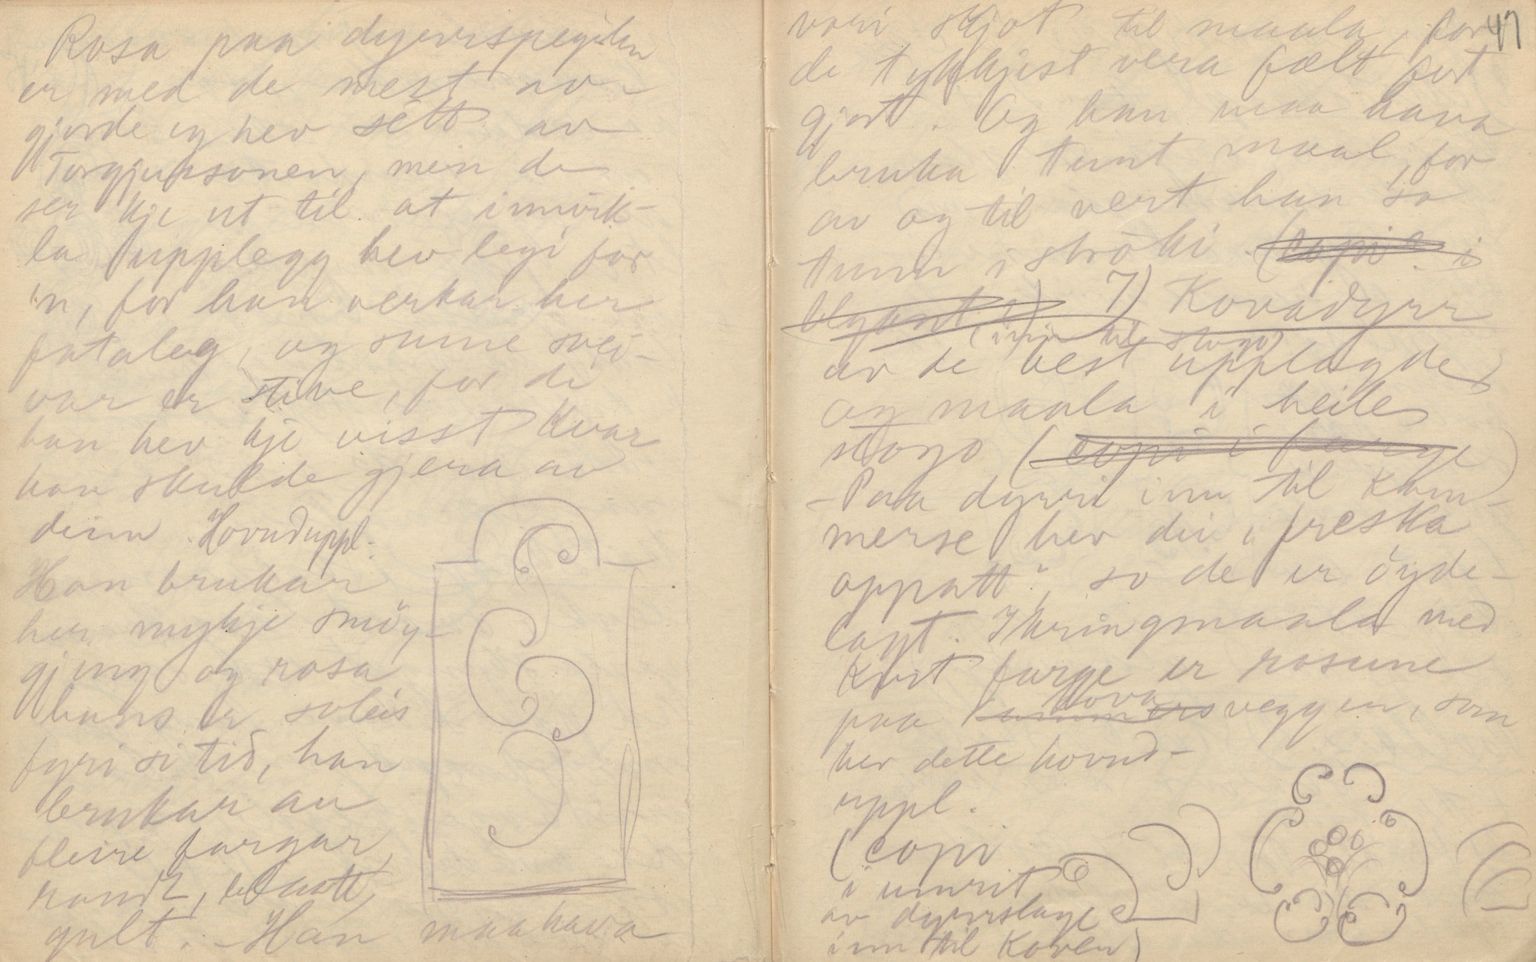 Rosa paa dyrrspegilen
er med de mest av-
gjorde eg hev sétt av
Torgjussonen, men de
ser kje ut til at innvik-
la upplegg hev legi for
'n, for han verkar her
fataleg, og sume svei-
var er stive, for di
han hev kje visst kvar
han skulde gjera av
deim. Hovuduppl.
Han brukar
her mykje smöy-
gjing og rosa
hans er soleis
fyri si tid, han
brukar au
fleire fargar,
raudt,
gult. - Han maa hava
47
vori skjot til maala, for
de tykkjest vera fælt fort
gjort. Og han maa hava
bruka tunt maal, for
av og til vert han so
tunn i ströki. (copi i
blyant) 7) Kovadyrr
(inn til stogo)
av de best upplagde,
og maala i heile
stogo (copi i farge)
- Paa dyrri inn til kam-
merse hev dei "freska
oppatt", so de er öyde-
lagt. Ikringmaala med
kvit farge er rosune
paa kova veggen, som
hev dette hovud-
uppl.
(copi
i umrit
av dyrrslage
inn til koven)